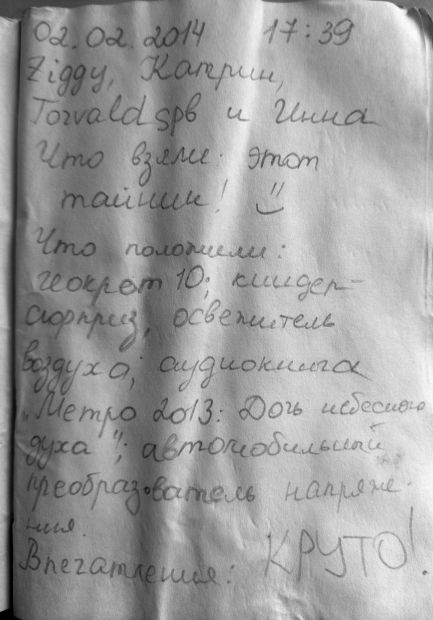 02.02.2014 17:39
Ziggy, Катрин,
Torvald spb и Инна
Что взяли: этот
тайник! :)
Что положили:
геокрот 10; киндер-
сюрприз, освежитель
воздуха; аудиокнига
"Метро 2013: Дочь небесного
духа"; автомобильный
преобразователь напряже-
ния.
Впечатления: КРУТО!